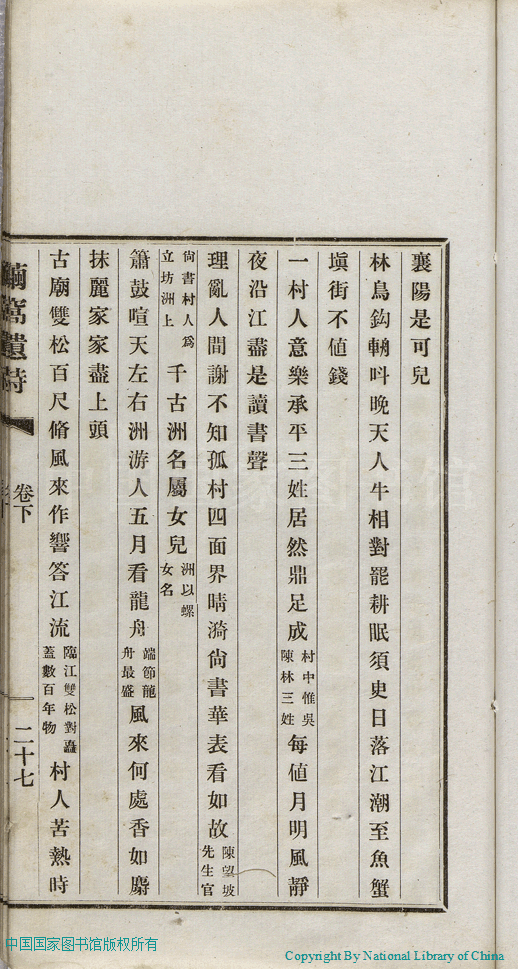 襄陽是可兒
林鳥鈎輈呌晚天人牛相對罷耕眠須史日落江潮至魚蟹
塡街不値錢
一村人意樂承平三姓居然鼎足成村中惟吳陳林三姓每値月明風靜
夜沿江盡是讀書聲
理亂人間謝不知孤村四面界晴漪尙書華表看如故陳望坡先生官
尙書村人爲立坊洲上千古洲名屬女兒洲以螺女名
簫鼓喧天左右洲游人五月看龍舟端節龍舟最盛風來何處香如麝
抹麗家家盡上頭
古廟雙松百尺脩風來作響答江流臨江雙松對矗蓋數百年物村人苦熱時
窩遺詩
卷下
二十七
中国国家图书馆
中国国家图书馆版权所有
Copyright By National Library of China